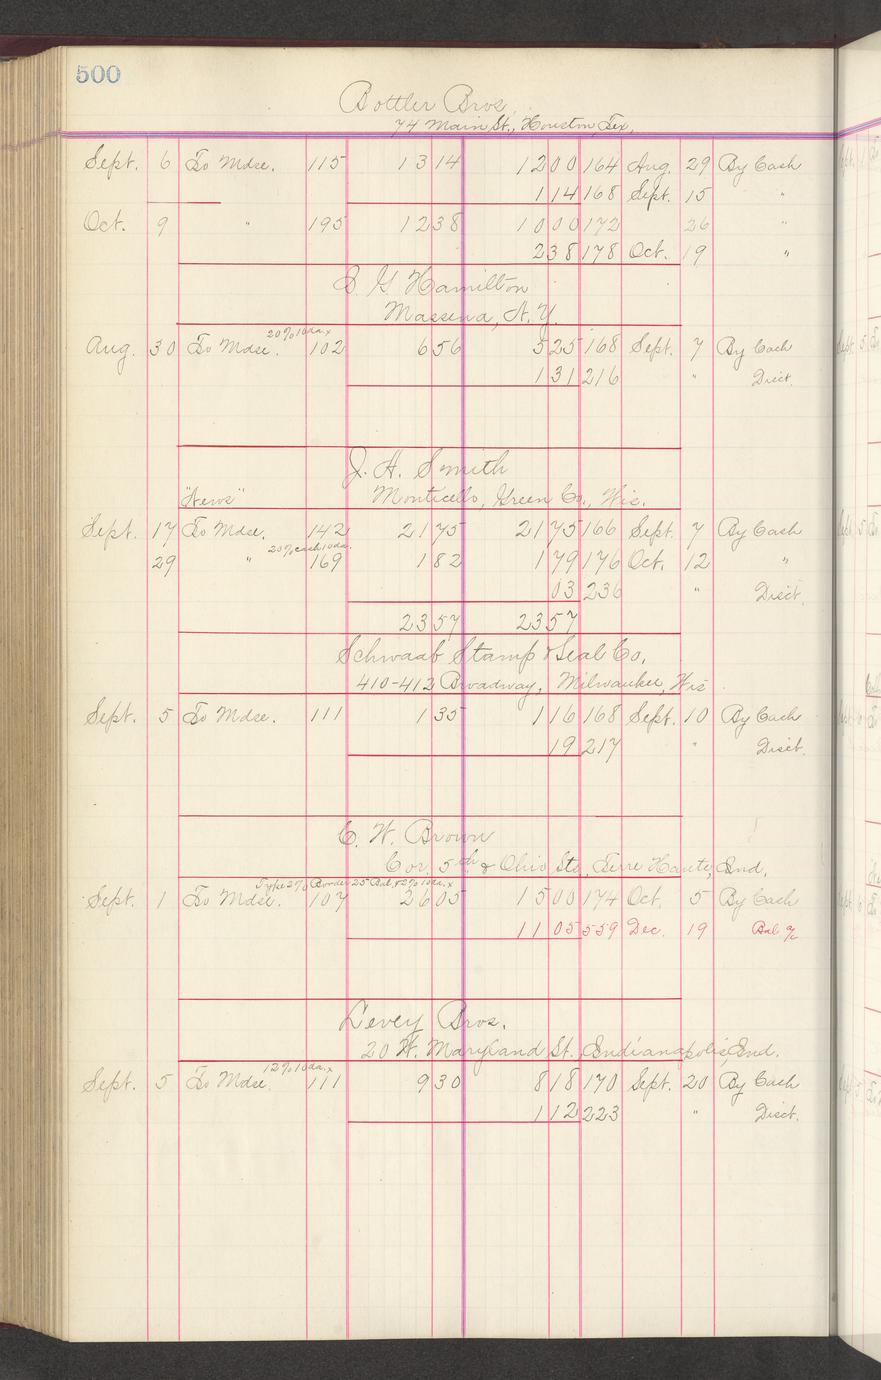 500
Bottler Bros.
74 Main St., Houston, Tex.
Sept. 6 To Mdse. 115 13 14 12 00 164 Aug. 29 By Cash
1 14 168 Sept. 15 "
Oct. 9 " 195 12 38 10 00 172 26 "
2 38 178 Oct. 19 "
G. Hamilton
Massena, N.Y.
20% 10 da. x
Aug. 30 To Mdse. 102 6 56 5 25 168 Sept. 7 By Cash
1 31 216 " Disct.
J. H. Smith
"News" Monticello, Green Co., Wis.
Sept. 17 To Mdse. 142 21 75 21 75 166 Sept. 7 By Cash
20% cash 10 da.
29 " 169 1 82 1 79 176 Oct. 12 "
03 236 " Disct.
23 57 23 57
Schwaab Stamp & Seal Co.
410-412 Broadway, Milwaukee, Wis
Sept. 5 To Mdse. 111 1 35 1 16 168 Sept. 10 By Cash
19 217 " Disct.
C. W. Brown
Cor. 5th & Ohio Sts., Terre Haute, Ind.
Type 2% Border 25 Bal. & 2% 10 da. x
Sept. 1 To Mdse. 107 26 05 15 00 174 Oct. 5 By Cash
11 05 559 Dec. 19 Bal a/c
Levey Bros.
20 W. Maryland St., Indianapolis, Ind.
12% 10 da. x
Sept. 5 To Mdse. 111 9 30 8 18 170 Sept. 20 By Cash
1 12 223 " Disct.